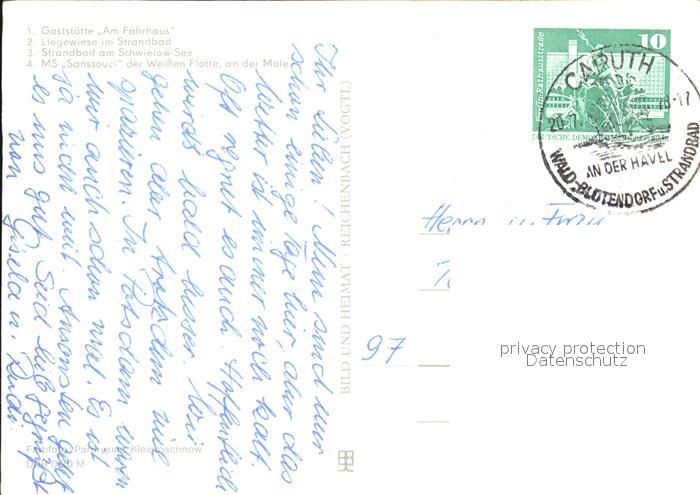 1. Gaststätte „Am Fährhaus"
2. Liegewiese im Strandbad
3. Strandbad am Schwielow-See
4. MS „Sanssouci" der Weißen Flotte, an der Mole
Ihr Lieben! Nun sind wir
schon einige Tage hier, aber das
Wetter ist immer noch kalt.
Oft regnet es auch. Hoffentlich
wird's bald besser. Wir
gehen aber trotzdem viel
spazieren. In Potsdam waren
wir auch schon mal. Es ist
ja nicht weit. Ansonsten geht
es uns gut. Seid lieb gegrüßt
von Gisela u. Rudi
BILD UND HEIMAT · REICHENBACH (VOGTL)
10
Berlin, Rathausstraße
DEUTSCHE DEMOKRATISCHE
CAPUTH
20.7. -17
AN DER HAVEL
WALD-BLÜTENDORF u. STRANDBAD
Herrn u. Frau
97
privacy protection
Datenschutz
Kleinmachnow